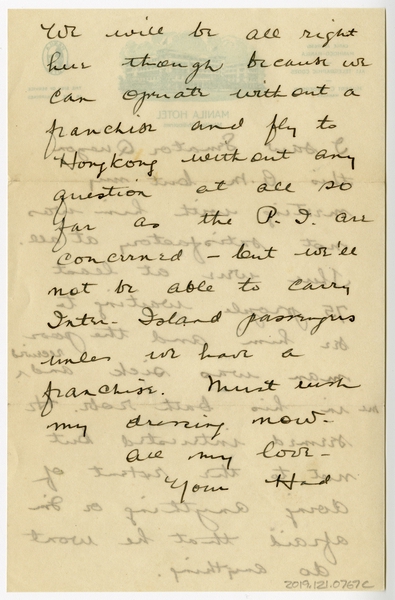 We will be all right
here though because we
can operate without a
franchise and fly to
Hongkong without any
question at all so
far as the P. I. are
concerned - but we'll
not be able to carry
Inter-Island passengers
unless we have a
franchise. Must rush
my dressing now.
All my love -
Your Had
2019.121.0767c